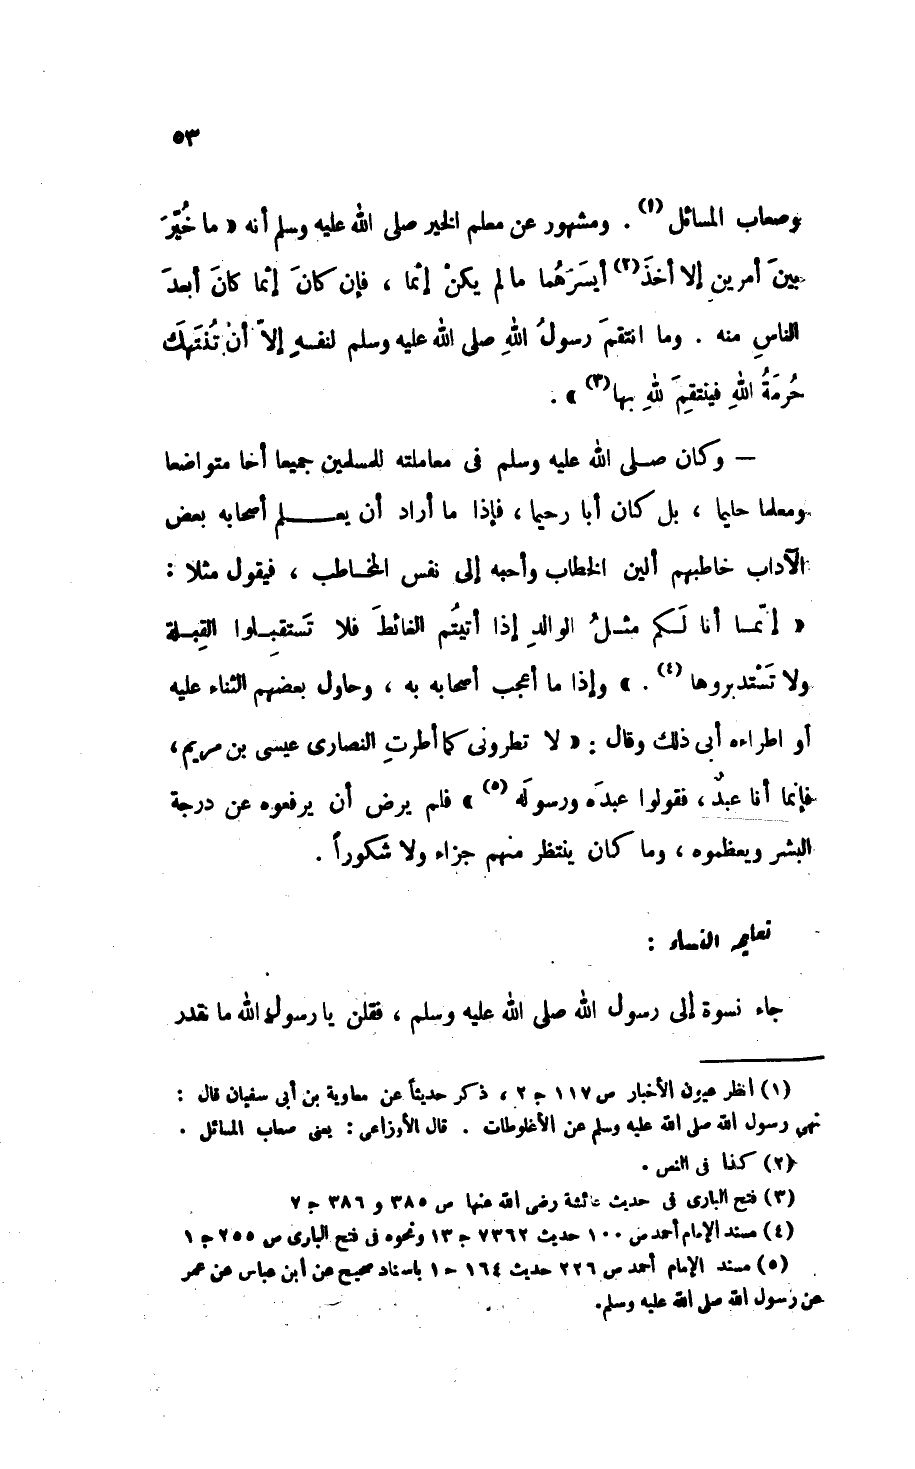 ٥٣
وصعاب المسائل (١) . ومشهور عن معلم الخير صلى الله عليه وسلم أنه « ما خُيِّرَ
بينَ أمرين إلا أخذَ (٢) أيسَرَهُما مالم يكنْ إثما ، فإن كانَ إثما كانَ أبعدَ
الناسِ منه . وما انتقمَ رسولُ اللهِ صلى الله عليه وسلم لنفسهِ إلاّ أنْ تُنتَهَكَ
حُرمَةُ اللهِ فينتقِمَ للهِ بها (٣) » .
— وكان صلى الله عليه وسلم فى معاملته للمسلمين جميعا أخا متواضعا
ومعلما حليما ، بل كان أبا رحيما ، فإذا ما أراد أن يعلم أصحابه بعض
الآداب خاطبهم ألين الخطاب وأحبه إلى نفس المخاطب ، فيقول مثلا :
« إنّما أنا لَكم مثلُ الوالدِ إذا أتيتُم الغائطَ فلا تَستقبِلوا القِبلة
ولا تَسْتدبروها (٤) . » وإذا ما أعجب أصحابه به ، وحاول بعضهم الثناء عليه
أو اطراءه أبى ذلك وقال : « لا تطرونى كما أطرتِ النصارى عيسى بن مريم ،
فإنما أنا عبدٌ ، فقولوا عبدَه ورسولَه (٥) » فلم يرض أن يرفعوه عن درجة
البشر ويعظموه ، وما كان ينتظر منهم جزاء ولا شكوراً .
تعليم النساء :
جاء نسوة إلى رسول الله صلى الله عليه وسلم ، فقلن يا رسول الله ما نقدر
(١) انظر عيون الأخبار ص ١١٧ ج ٢ ، ذكر حديثاً عن معاوية بن أبى سفيان قال :
نهى رسول الله صلى الله عليه وسلم عن الأغلوطات . قال الأوزاعى : يعنى صعاب المسائل .
(٢) كذا فى النص .
(٣) فتح البارى فى حديث عائشة رضى الله عنها ص ٣٨٥ و ٣٨٦ ج ٧
(٤) مسند الإمام أحمد ص ١٠٠ حديث ٧٣٦٢ ج ١٣ ونحوه فى فتح البارى ص ٢٥٥ ج ١
(٥) مسند الإمام أحمد ص ٢٢٦ حديث ١٦٤ ج ١ بإسناد صحيح عن ابن عباس عن عمر
عن رسول الله صلى الله عليه وسلم.